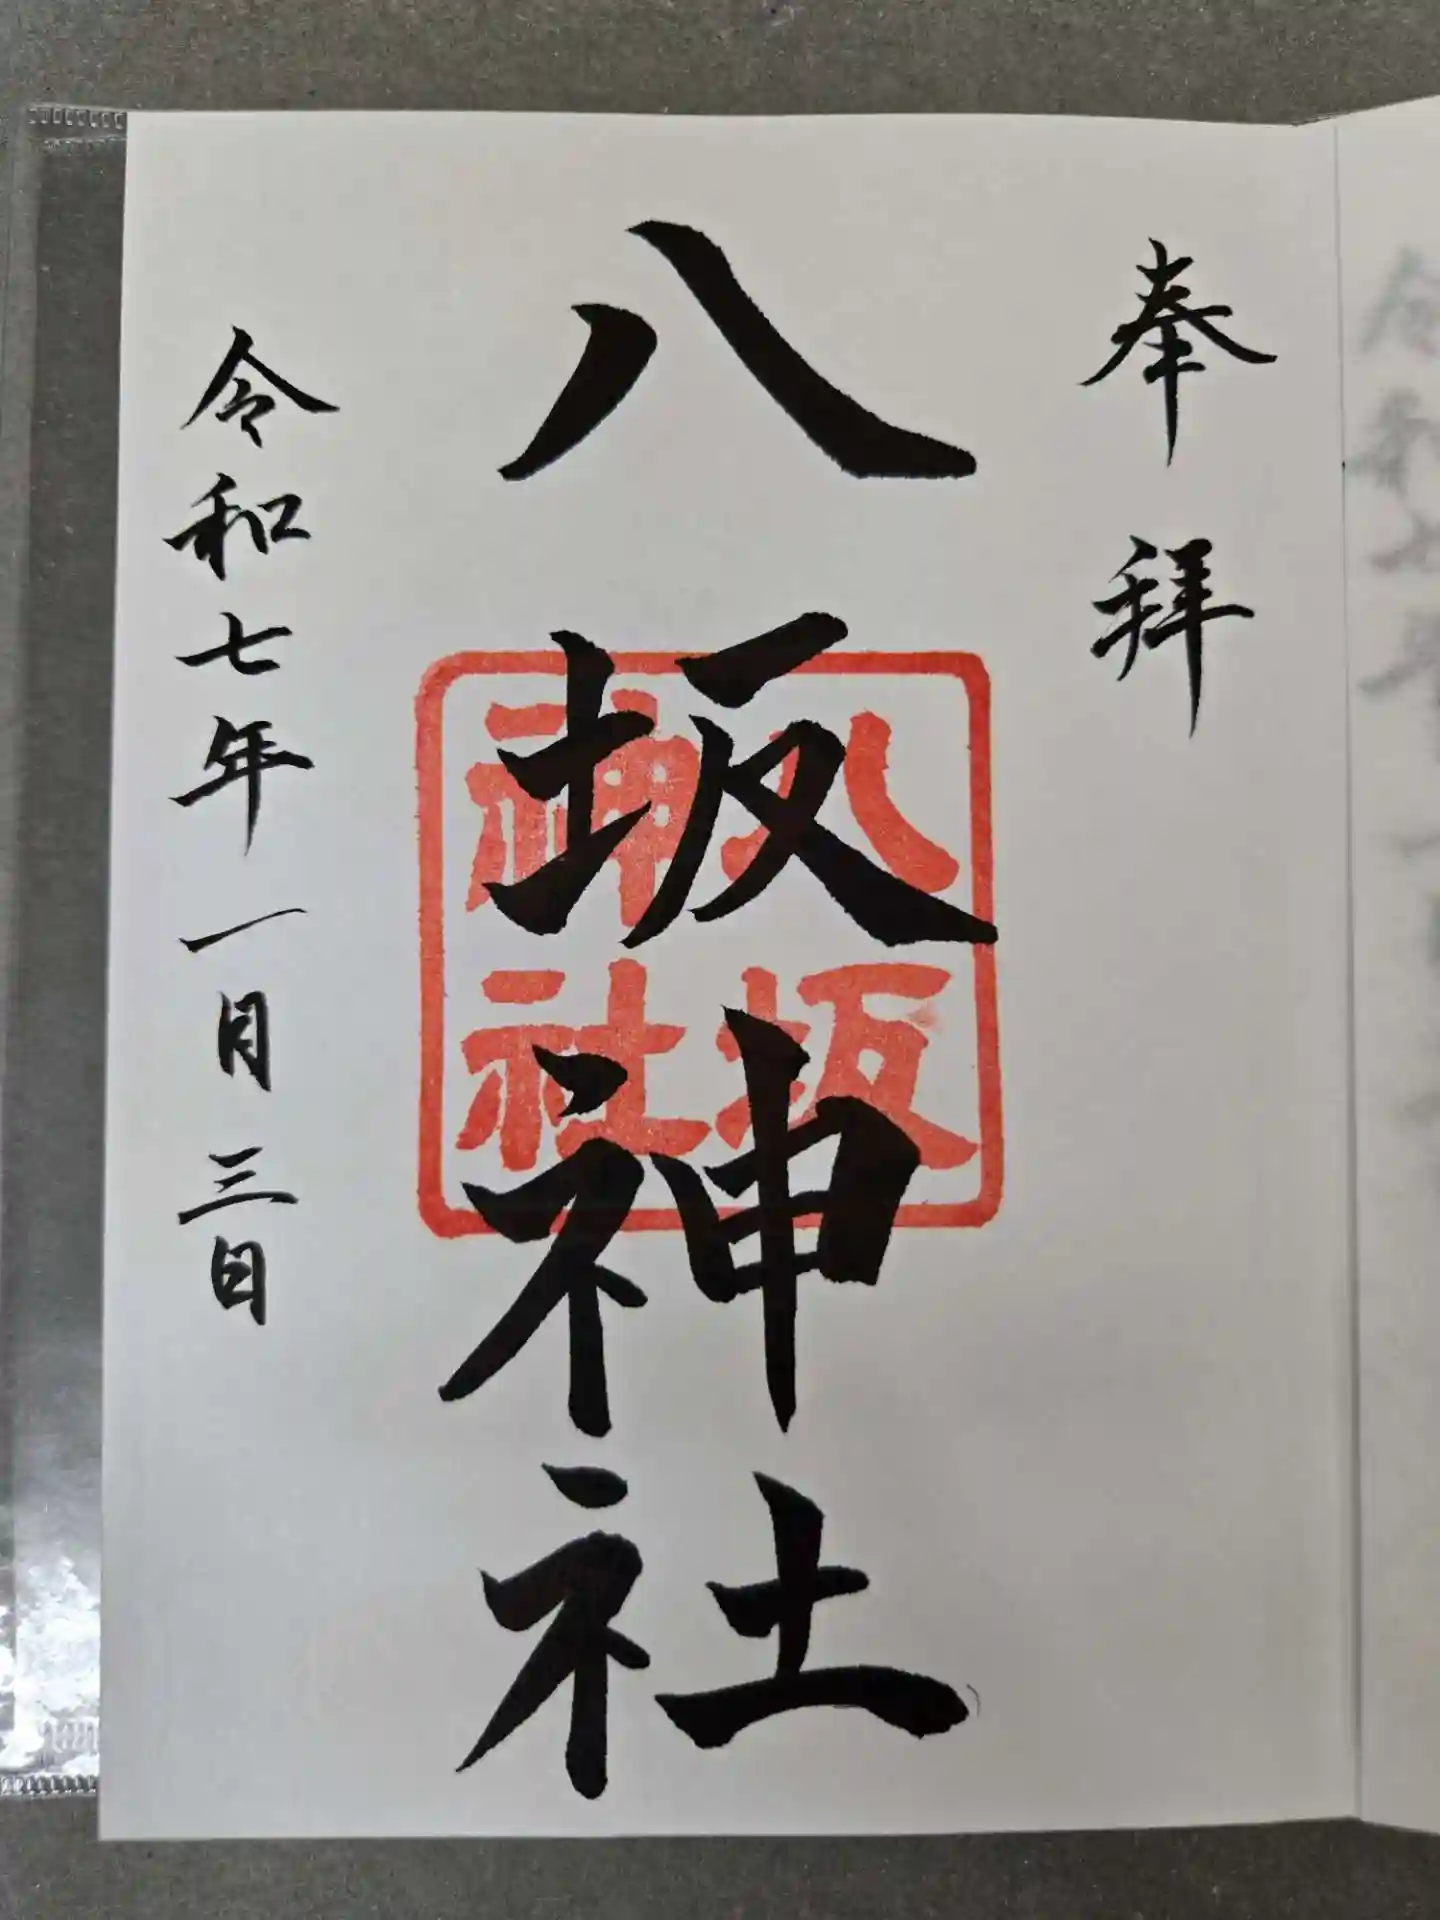 奉拝
八坂神社
八坂
神社
令和七年一月三日